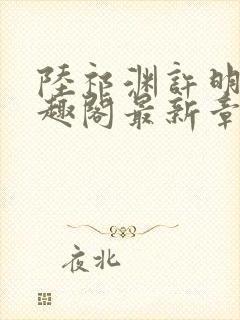 陸祁渊許明
趣閣最新章
夜北